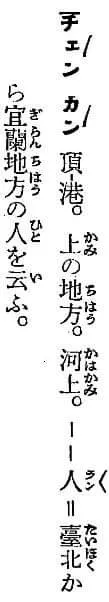 チェン カン 頂-港。 上の地方。河上。——人=臺北か
ら宜蘭地方の人を云ふ。